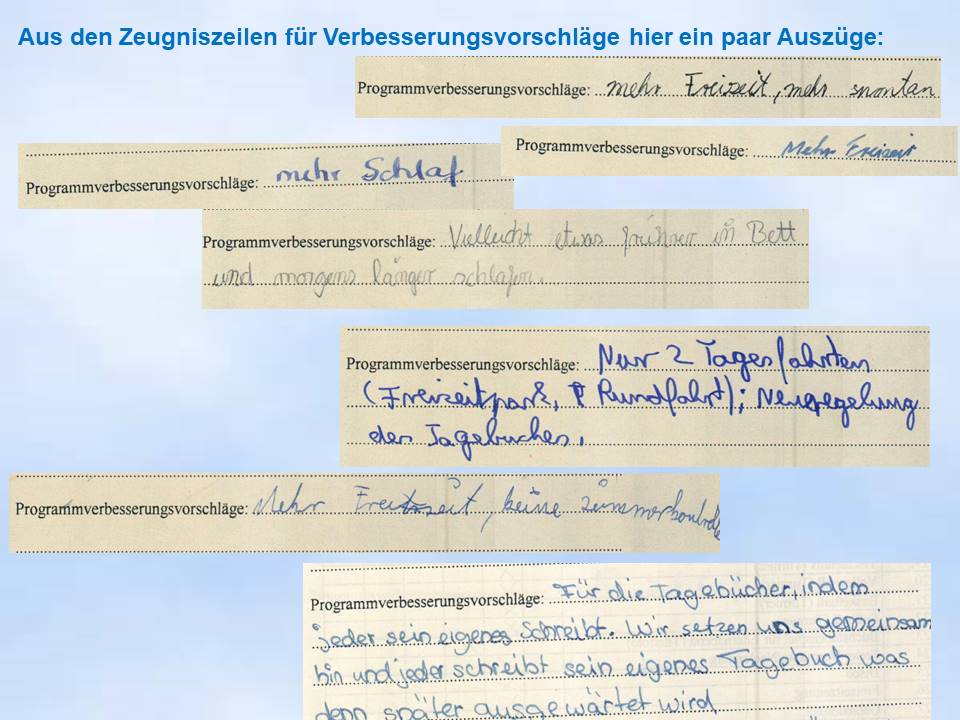 Aus den Zeugniszeilen für Verbesserungsvorschläge hier ein paar Auszüge:
Programmverbesserungsvorschläge: mehr Freizeit, mehr spontan
Programmverbesserungsvorschläge: Mehr Freizeit
Programmverbesserungsvorschläge: mehr Schlaf
Programmverbesserungsvorschläge: Vielleicht etwas früher im Bett
und morgens länger schlafen.
Programmverbesserungsvorschläge: Nur 2 Tagesfahrten
(Freizeitpark, Rundfahrt); Neuregelung
des Tagebuches.
Programmverbesserungsvorschläge: Mehr Freizeit, keine Zimmerkontrolle
Programmverbesserungsvorschläge: Für die Tagebücher, indem
jeder sein eigenes Schreibt. Wir setzen uns gemeinsam
hin und jeder schreibt sein eigenes Tagebuch was
denn später ausgewärtet wird